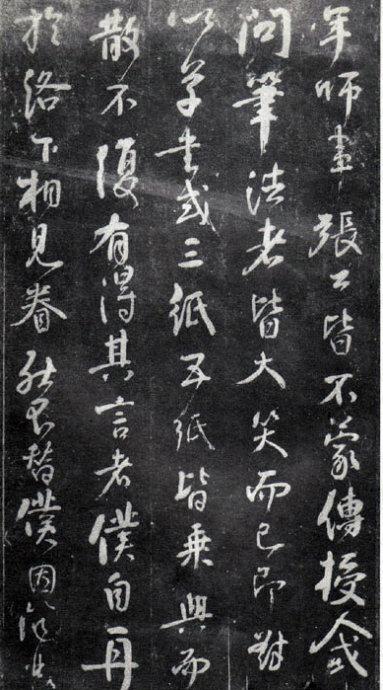 年師事張公皆不蒙傳授人或
問筆法者皆大笑而已即對
以草書或三紙五紙皆乘興而
散不復有得其言者僕自再
於洛下相見眷然不替僕因